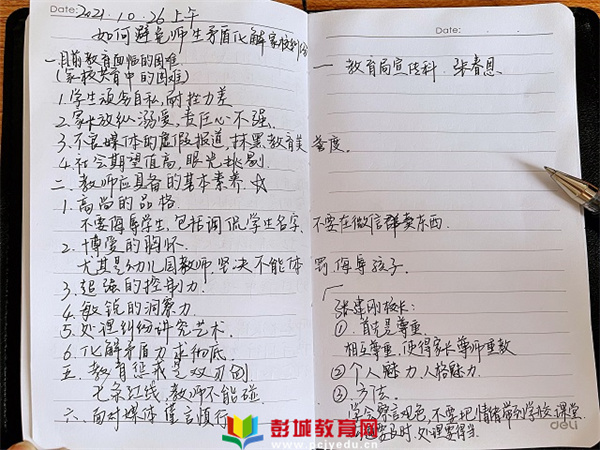 Date: 2021.10.26上午
如何避免师生矛盾化解家校纠纷
一目前教育面临的困难.
(家校共育中的困难)
1.学生顽劣自私,耐挫力差
2.家长放纵溺爱,责任心不强.
3.不良媒体的虚假报道,抹黑教育美誉度.
4.社会期望值高,眼光挑剔.
二、教师应具备的基本素养☆
1.高尚的品格.
不要侮辱学生,包括调侃学生名字. 不要在微信群卖东西.
2.博爱的胸怀.
尤其是幼儿园教师,坚决不能体罚.侮辱孩子.
3.超强的控制力.
4.敏锐的洞察力.
5.处理纠纷讲究艺术.
6.化解矛盾力求彻底.
五、教育惩戒是双刃剑
七条红线,教师不能碰
六、面对媒体谨言慎行
Date:
一 教育局宣传科 张春恩
张建刚校长:
①首先是尊重.
相互尊重,使得家长尊师重教
②个人魅力,人格魅力.
③方法.
学会察言观色,不要把情绪带到学校课堂
要及时,处理要得当.
deli
彭城教育网
www.pcjyedu.cn